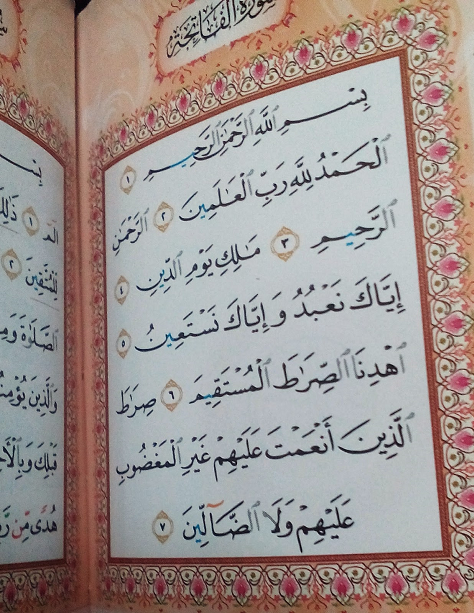 سورة الفاتحة
بِسْمِ ٱللَّهِ ٱلرَّحْمَٰنِ ٱلرَّحِيمِ ١
ٱلْحَمْدُ لِلَّهِ رَبِّ ٱلْعَٰلَمِينَ ٢ ٱلرَّحْمَٰنِ
ٱلرَّحِيمِ ٣ مَٰلِكِ يَوْمِ ٱلدِّينِ ٤
إِيَّاكَ نَعْبُدُ وَإِيَّاكَ نَسْتَعِينُ ٥
ٱهْدِنَا ٱلصِّرَٰطَ ٱلْمُسْتَقِيمَ ٦ صِرَٰطَ
ٱلَّذِينَ أَنْعَمْتَ عَلَيْهِمْ غَيْرِ ٱلْمَغْضُوبِ
عَلَيْهِمْ وَلَا ٱلضَّآلِّينَ ٧
بِسْ
١ ذَٰلِكَ
لِلْمُتَّقِينَ ٢
ٱلصَّلَوٰةَ
وَٱلَّذِينَ يُؤْمِنُ
قَبْلِكَ وَبِٱلْأَ
هُدًى مِّن